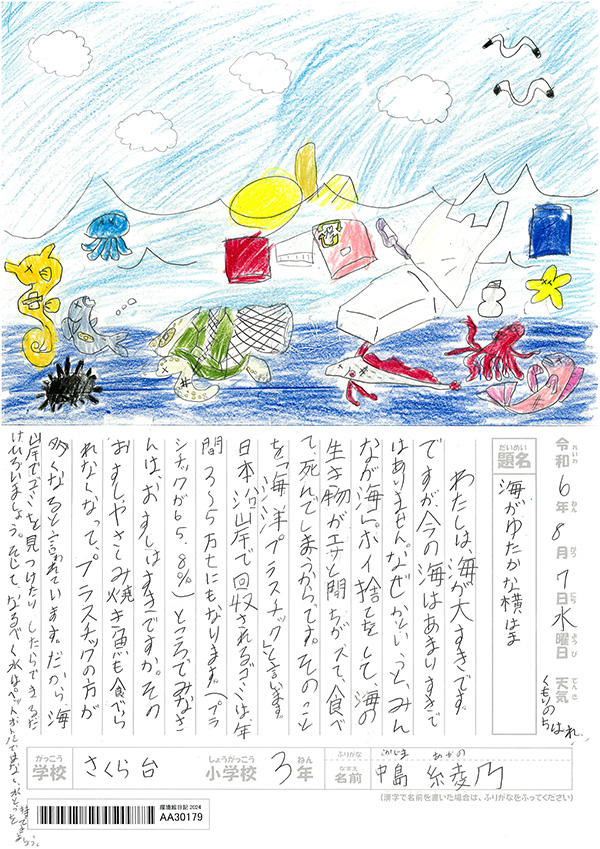 令和6年8月7日水曜日 天気 くもりのちはれ
れいわ ねん がつ にち ようび てんき
だいめい
題名 海がゆたかな横はま
わたしは、海が大すきです。
ですが今の海はあまりすきで
はありません。なぜかというと、みん
なが海にポイ捨てをして、海の
生き物がエサと間ちがえて、食べ
て、死んでしまうからです。そのこと
を「海洋プラスチック」と言います。
日本沿岸で回収されるゴミは、年
間3〜5万tにもなります。(プラ
スチックが65.8%)ところでみなさ
んは、おすしはすきですか。その
おすしやさしみ焼き魚も食べら
れなくなって、プラスチックの方が
多くなると言われています。だから、海
岸でゴミを見つけたりしたらできるだ
けひろいましょう。そして、なるべく水はペットボトルでまなく、水とうを
持てきましょう。
がっこう
学校 さくら台 しょうがっこう
小学校 3 ねん
年
ふりがな なかじま あやの
なまえ
名前 中島 綾乃
(漢字で名前を書いた場合は、ふりがなをふってください)
環境絵日記 2024
AA30179